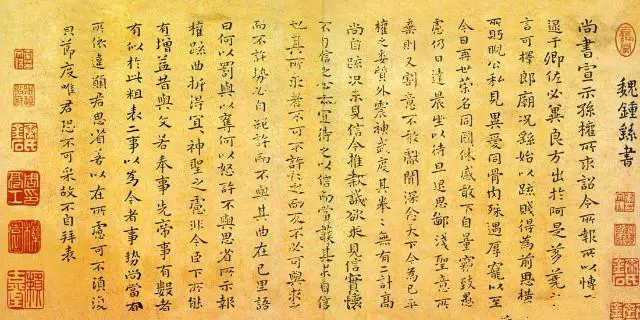 魏鍾繇書
尚書宣示孫權所求詔令所報所以博
逮于卿佐必冀良方出於阿是芻蕘
言可擇郎廟況繇始以疏賤得為前恩橫
所盻睨公私見異愛同骨肉殊遇厚寵以至
今日再世榮名同國休慼敢不自量竊致愚
慮仍日達晨坐以待旦退思鄙淺聖意所
棄則又割意不敢獻聞深念天下今為已平
權之委質外震神武度其拳拳無有二計高
尚自疏況未見信今推款誠欲求見信實懷
不自信之心亦宜待之以信而當護其未自信
也其所求者不可不許許之而反不必可與求之
而不許勢必自絕許而不與其曲在己里語
曰何以罰與以奪何以怒許不與思省所示報
權疏曲折得宜宜神聖之慮非今臣下所能
有增益昔與文若奉事先帝事有數者
有似於此粗表二事以為今者事勢尚當有
所依違願君思省若以在所慮可不須後
節度唯君恐不可采故不自拜表